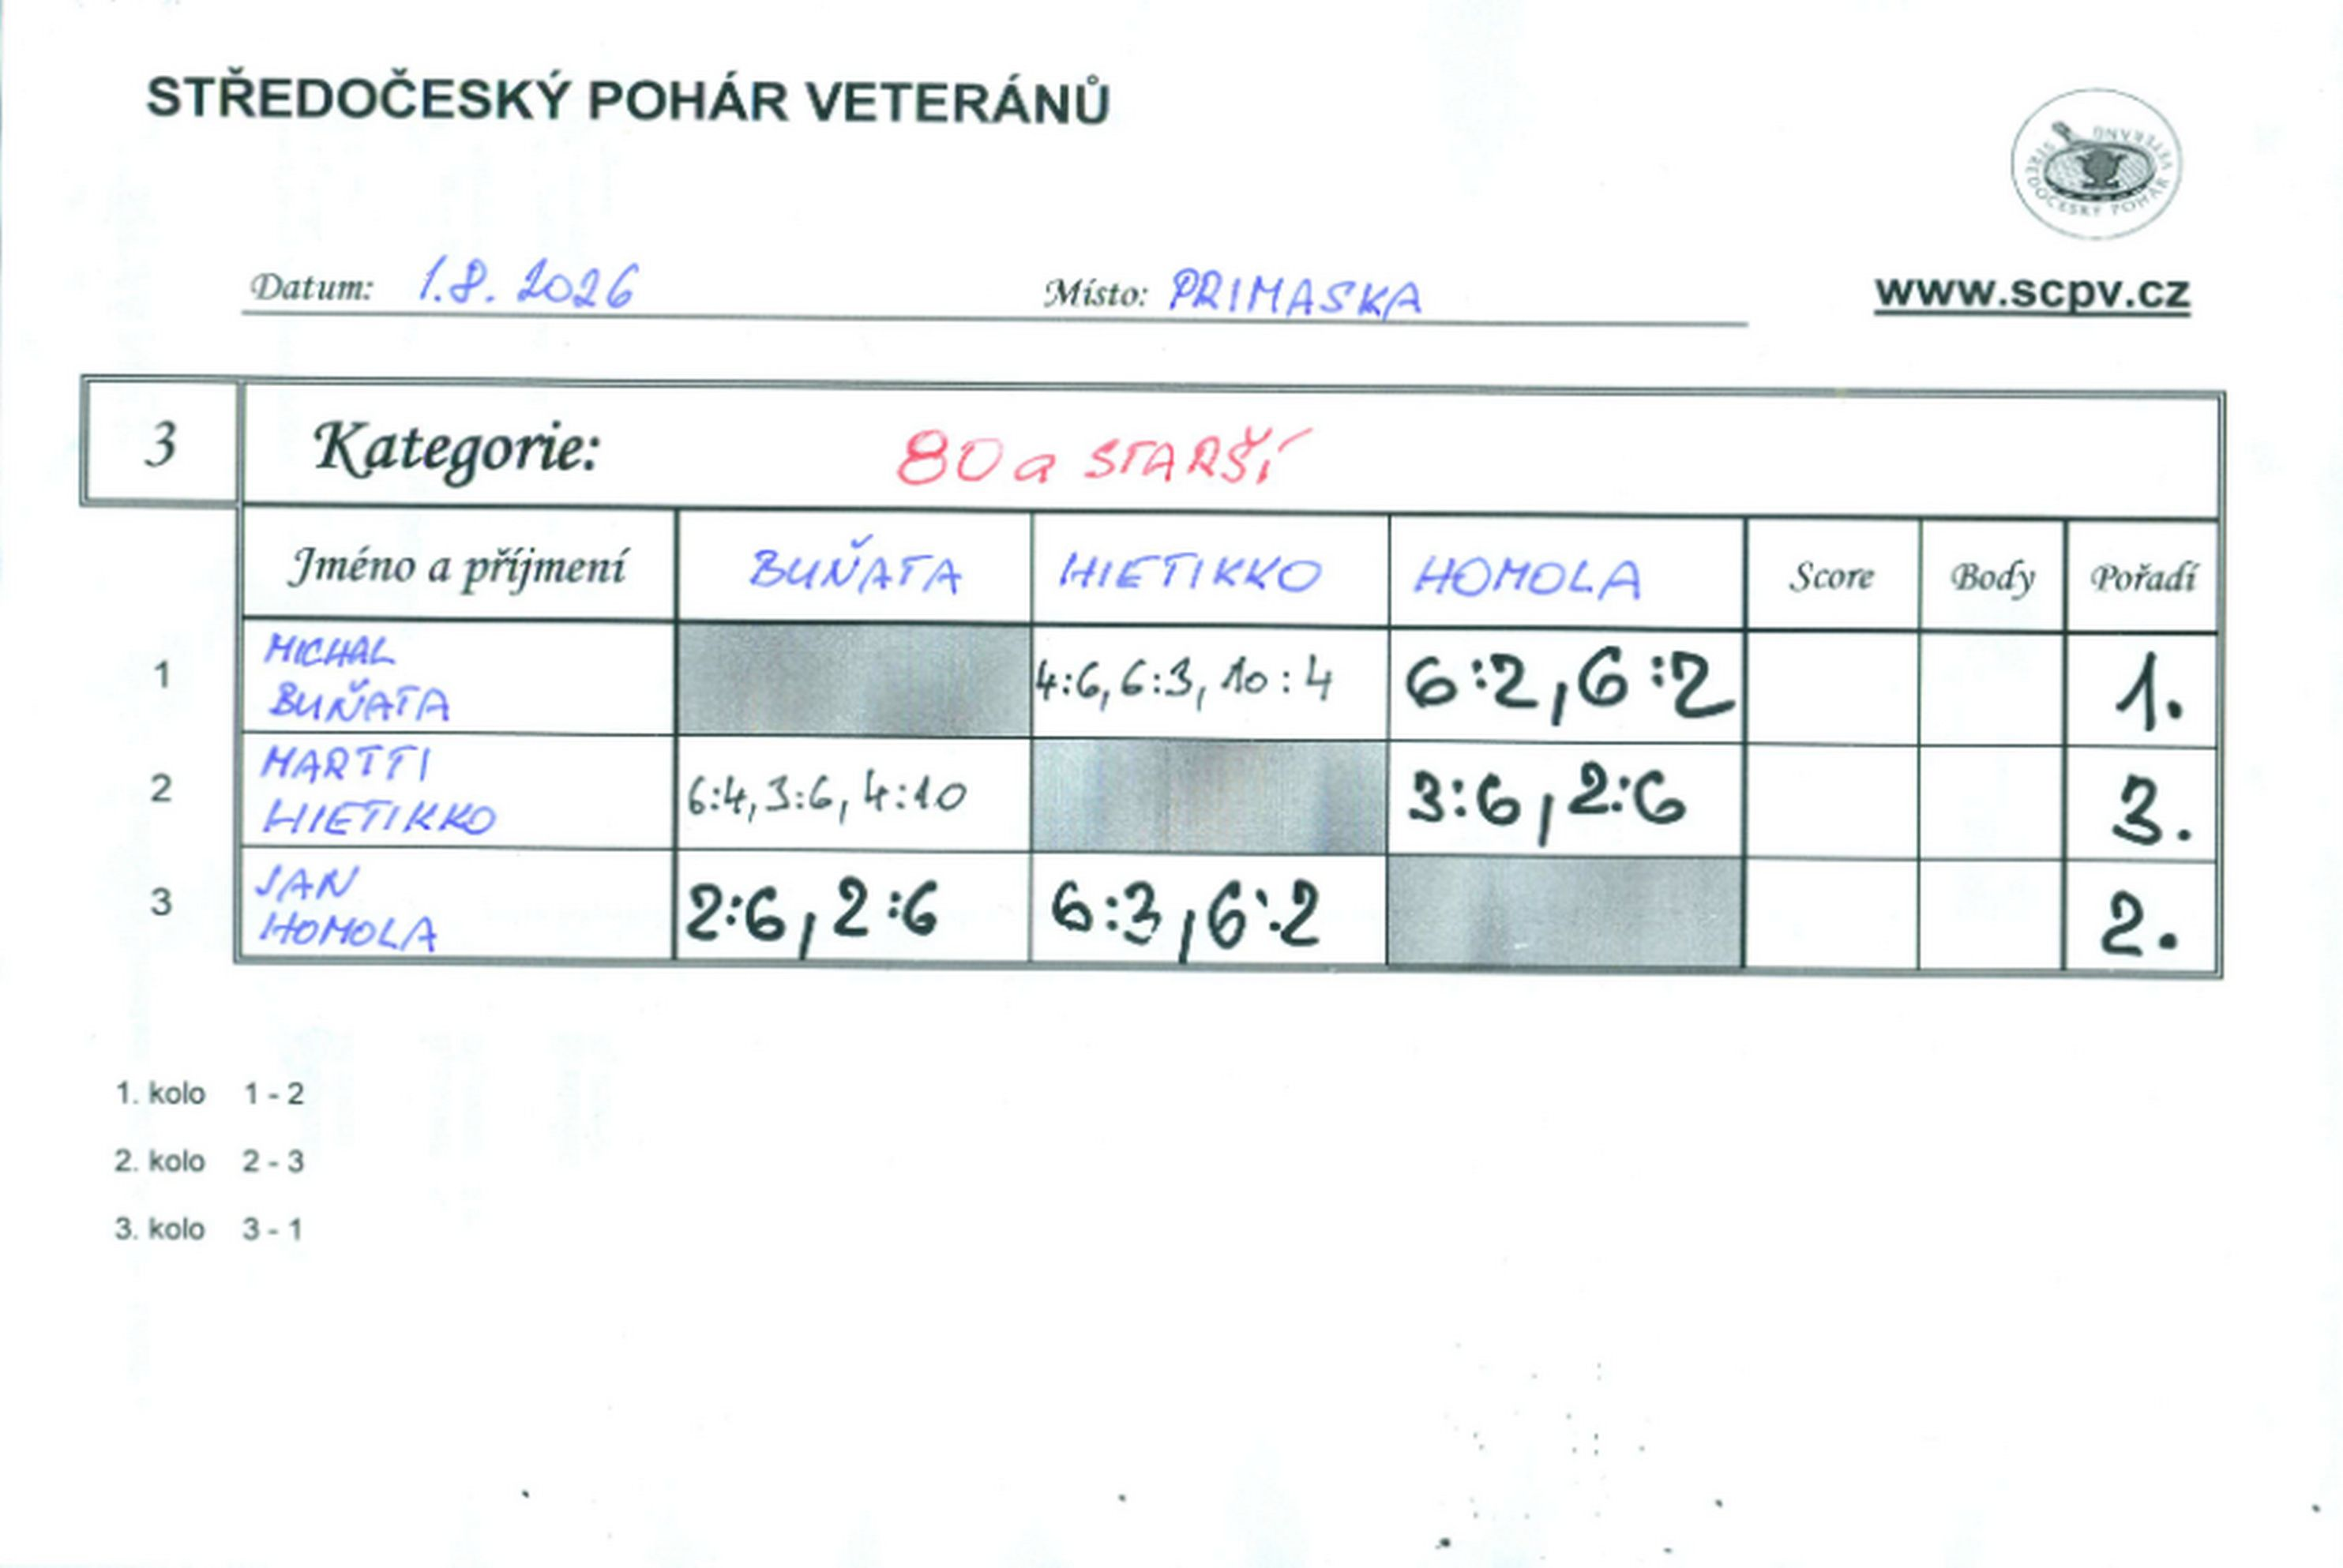 STŘEDOČESKÝ POHÁR VETERÁNŮ
STŘEDOČESKÝ POHÁR VETERÁNŮ
Datum: 1.8. 2026 Místo: PRIMASKA
www.scpv.cz
3 Kategorie: 80 a STARŠÍ
Jméno a příjmení BUŇATA HIETIKKO HOMOLA Score Body Pořadí
1 MICHAL BUŇATA 4:6, 6:3, 10:4 6:2, 6:2 1.
2 MARTTI HIETIKKO 6:4, 3:6, 4:10 3:6, 2:6 3.
3 JAN HOMOLA 2:6, 2:6 6:3, 6:2 2.
1. kolo 1 - 2
2. kolo 2 - 3
3. kolo 3 - 1